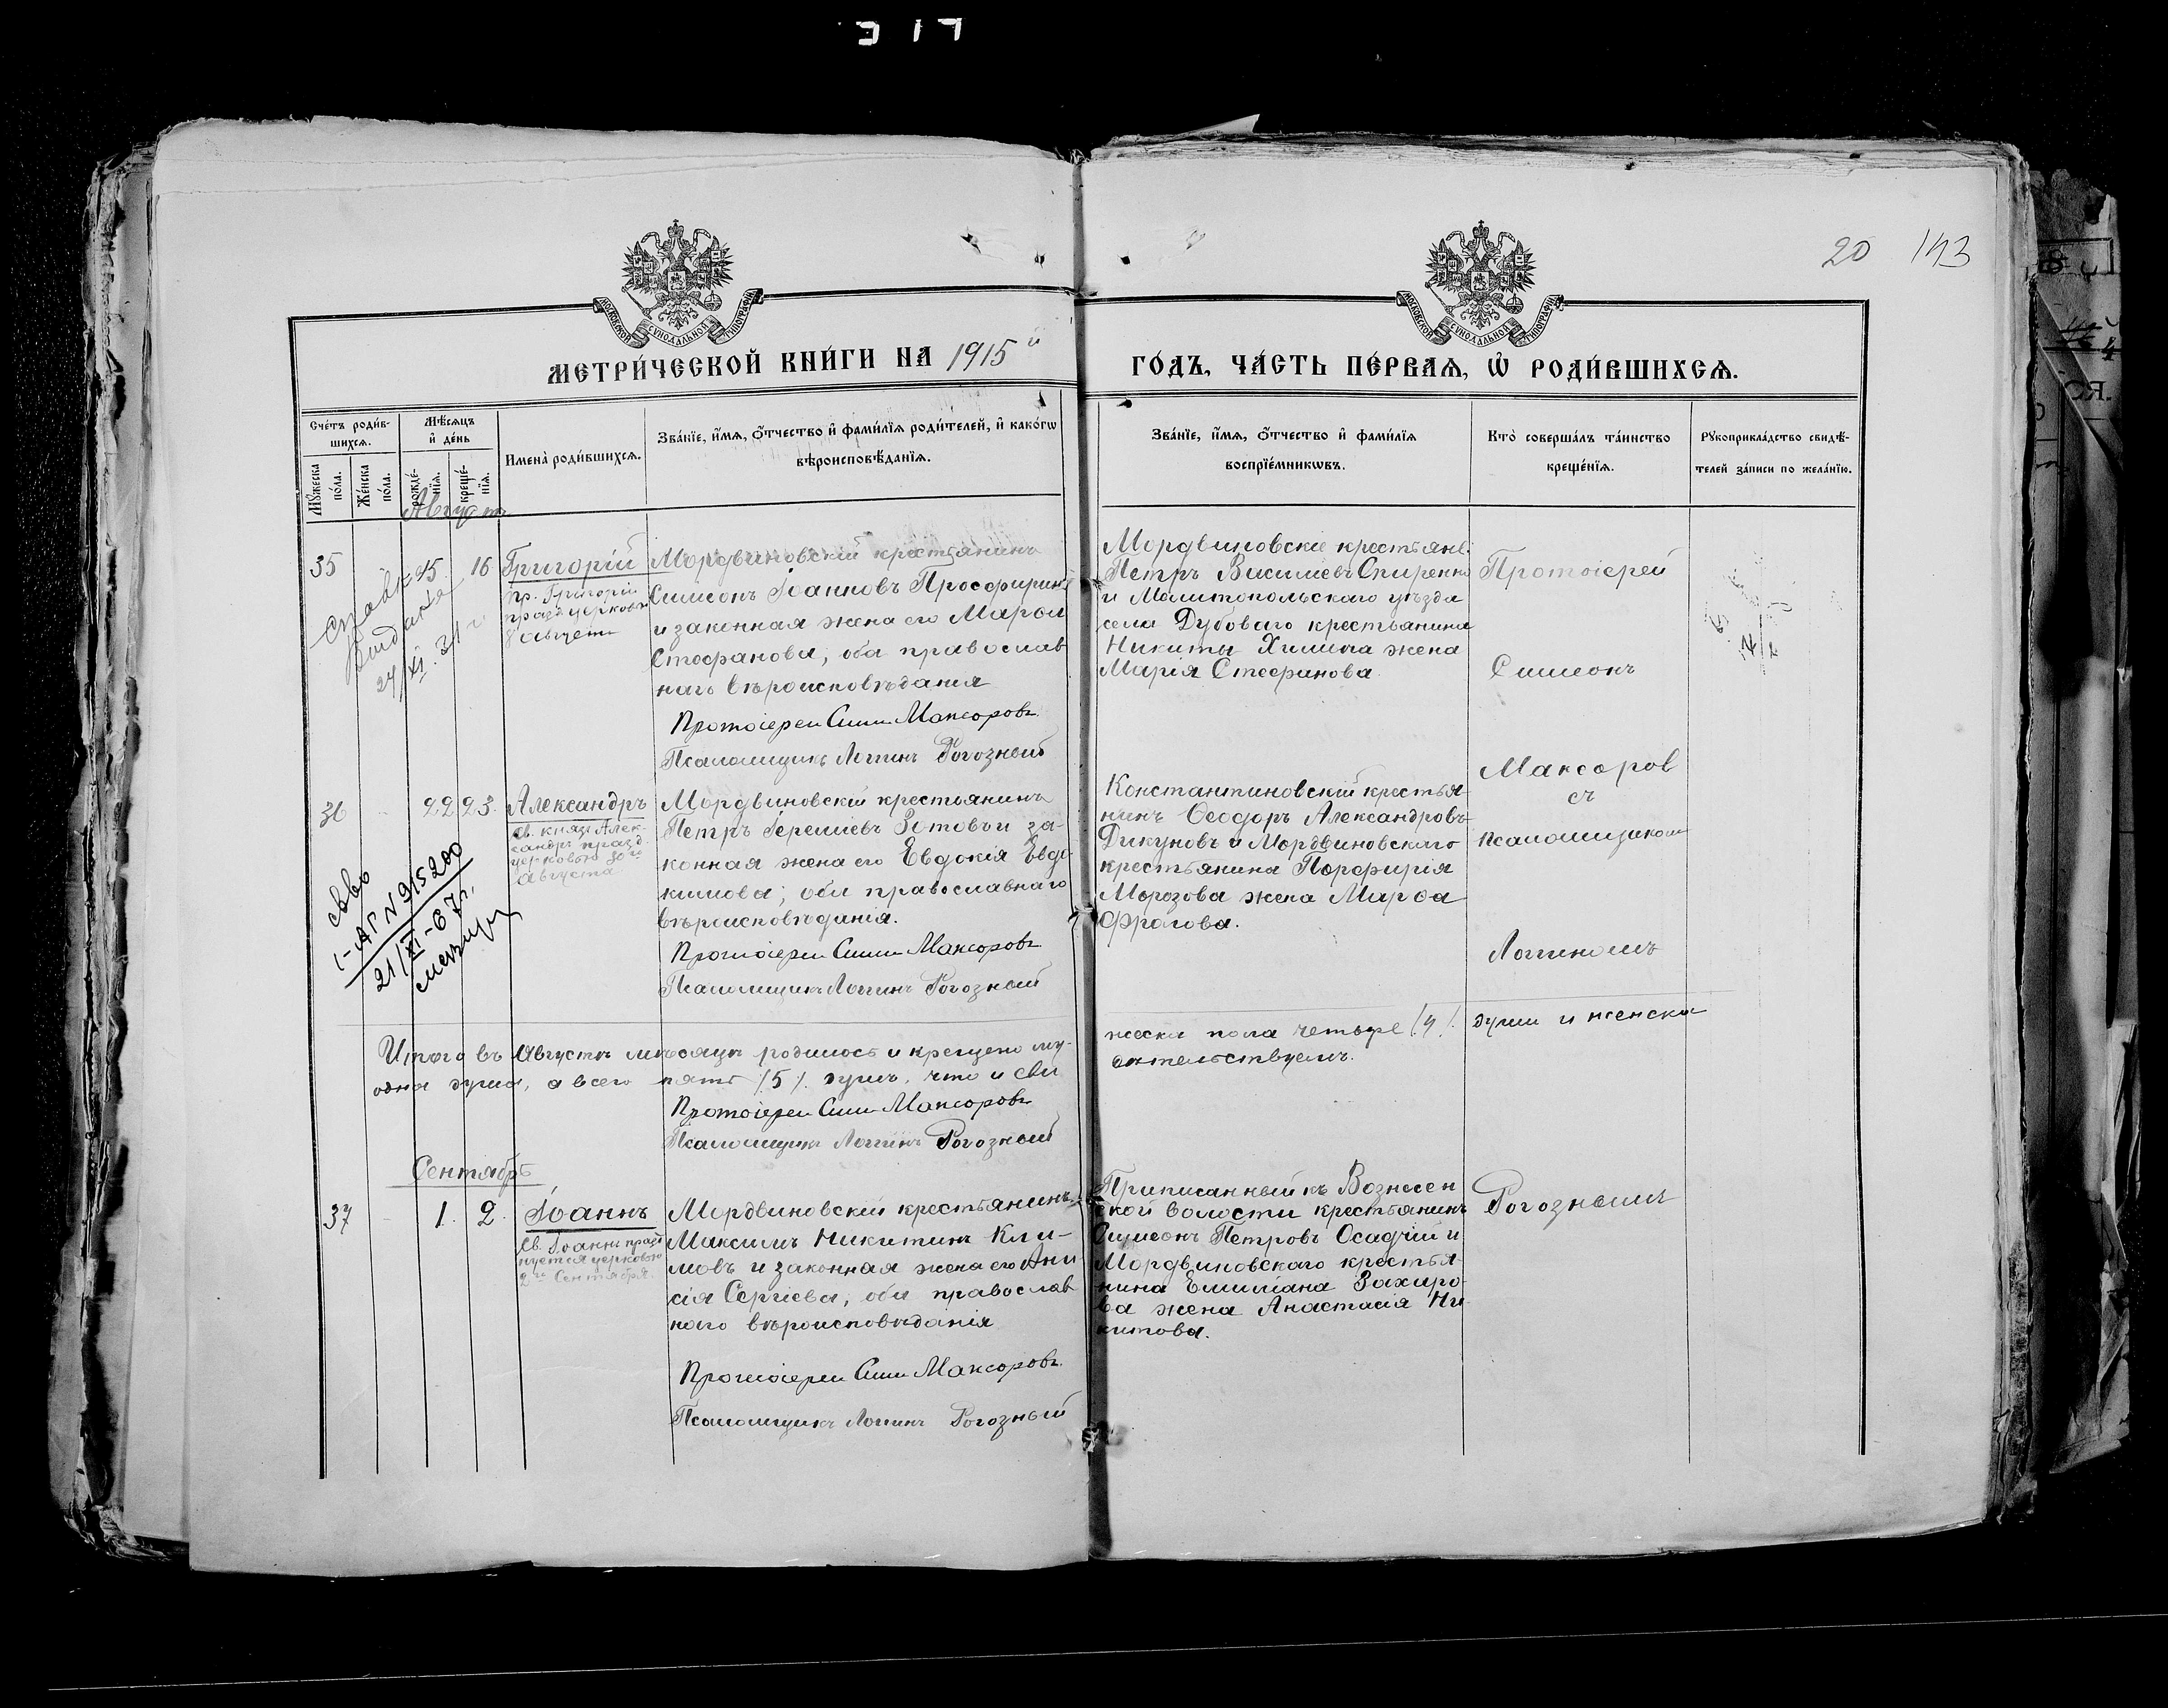 317
20 143
МОСКОВСКОЙ СѴНОДАЛЬНОЙ ТИПОГРАФІИ
МОСКОВСКОЙ СѴНОДАЛЬНОЙ ТИПОГРАФІИ
МЕТРИ́ЧЕСКОЙ КНИ́ГИ НА 1915й
ГО́ДЪ, ЧА́СТЬ ПЕ́РВАѦ, Ѡ҆ РОДИ́ВШИХСѦ.
Сче́тъ роди́в-
шихсѧ.
Мꙋ́жеска по́ла.
Же́нска по́ла.
Мѣ́сѧцъ
и҆ де́нь
рожде́-
нїѧ.
креще́-
нїѧ.
И҆мена̀ роди́вшихсѧ.
Зва́нїе, и҆́мѧ, ѻ҆́тчество и҆ фами́лїѧ роди́телей, и҆ како́гѡ
вѣроисповѣ́данїѧ.
Зва́нїе, и҆́мѧ, ѻ҆́тчество и҆ фами́лїѧ
воспрїе́мникѡвъ.
Кто̀ соверша́лъ та́инство
креще́нїѧ.
Рꙋкоприкла́дство свидѣ́-
телей за́писи по жела́нїю.
Августъ
35
15
16
Григорій
пр. Григорій
празд. церковью
8 августа
Справка
выдана
24/XI. 31 г
Мордвиновскій крестьянинъ
Симеонъ Іоанновъ Просфиринъ
и законная жена его Марѳа
Стефанова, оба православ
наго вѣроисповѣданія
Протоіерей Сим. Максоровъ
Псаломщикъ Логгинъ Рогозный
Мордвиновскіе крестьяне:
Петръ Василіевъ Спиренко
и Мелитопольскаго уѣзда
села Дубоваго крестьянина
Никиты Химича жена
Марія Стефанова.
Протоіерей
Симеонъ
Максоров
съ
псаломщикомъ
Логгиномъ
Рогознымъ
36
22
23.
Александръ
св. князь Алек-
сандръ празд.
церковью 30го
Августа
Сво
I-АП N 915200
21/XI-67г.
Мордвиновскій крестьянинъ
Петръ Іереміевъ Зотовъ и за-
конная жена его Евдокія Евдо-
кимова; оба православнаго
вѣроисповѣданія.
Протоіерей Сим. Максоровъ
Псаломщикъ Логгинъ Рогозный
Константиновскій крестья-
нинъ Ѳеодоръ Александровъ
Дикуновъ и Мордвиновскаго
крестьянина Порфирія
Морозова жена Марѳа
Фролова.
Итого въ Августѣ мѣсяцѣ родилось и крещено му-
жеска пола четыре /4/. души и женска
одна душа, а всего пять /5/. душъ, что и сви
дѣтельствуемъ.
Протоіерей Сим. Максоровъ
Псаломщикъ Логгинъ Рогозный
Сентябрь
37
1.
2.
Іоаннъ
Св. Іоаннъ празд
нуется церковью
2го Сентября.
Мордвиновскій крестьянинъ
Максимъ Никитинъ Кли-
мовъ и законная жена его Ани
сія Сергіева, оба православ
наго вѣроисповѣданія
Протоіерей Сим. Максоровъ.
Псаломщикъ Логгинъ Рогозный
Приписанный къ Вознесен
ской волости крестьянинъ
Симеонъ Петровъ Осадчій и
Мордвиновскаго крестья-
нина Емиліана Захаро-
ва жена Анастасія Ни-
китова.